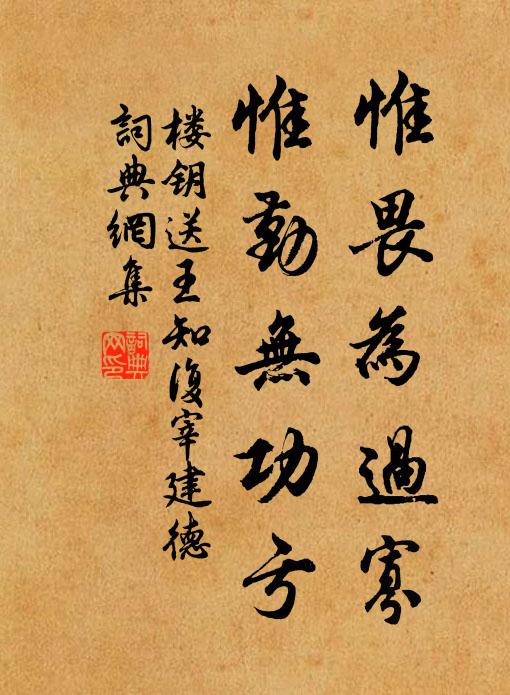 惟畏為過寡
惟勤無功亏
楼钥送王知復宰建德
詞典網集
詞典
网印